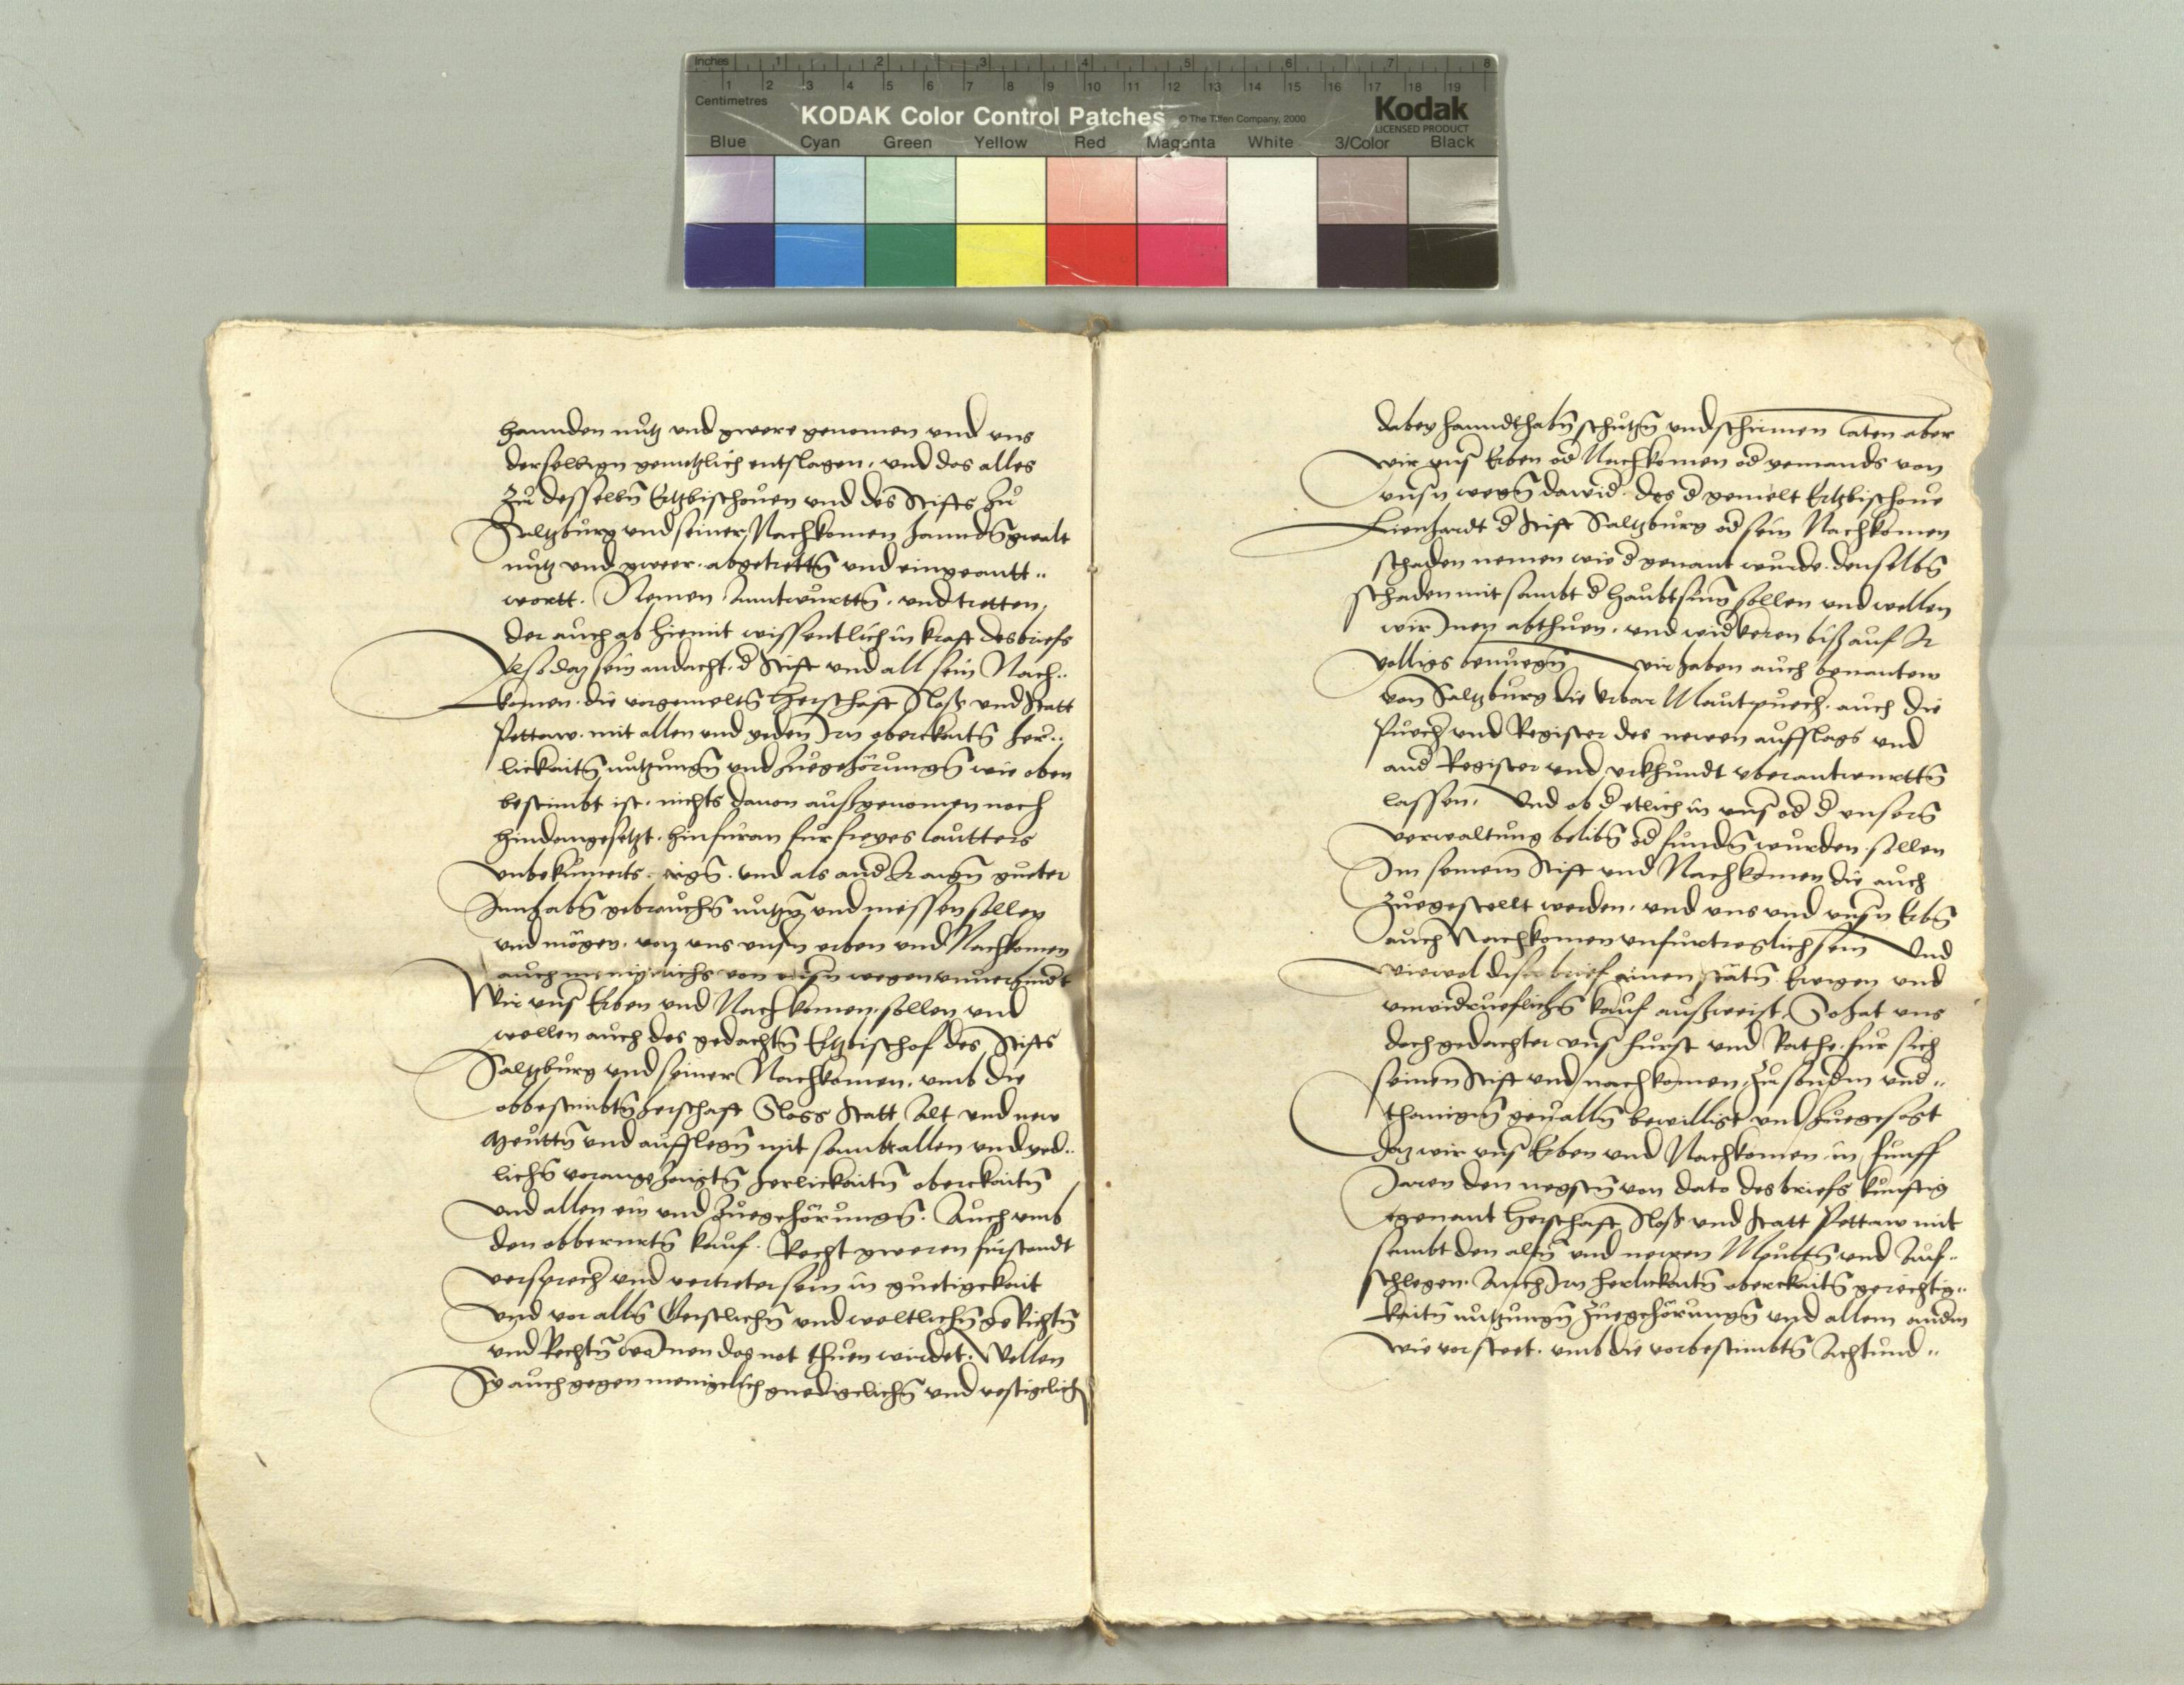 Inches 1 2 3 4 5 6 7 8
1 2 3 4 5 6 7 8 9 10 11 12 13 14 15 16 17 18 19
Centimetres
KODAK Color Control Patches © The Tiffen Company, 2000 Kodak
LICENSED PRODUCT
Blue Cyan Green Yellow Red Magenta White 3/Color Black
hannden nutz vnd gwere genomen vnd vns
derselbign genntzlich entslagen, vnd das alles
zu desselbn̄ Ertzbischouen vnd des Stiffts zu
Saltzburg vnd seiner Nachkomen hanndn̄ gwalt
nutz vnd gweer. abgetrettn̄ vnd eingeantt..
wortt. Nemen. Anntwurttn̄. vnd tretten,
der auch ab hiemit wissentlich in krafft des briefs
Also daz sein andacht. d Stifft vnd all sein Nach..
komen. die vorgemeltn̄ Herschafft Sloß vnd Statt
Pettaw. mit allen vnd yeden Irn oberckaitn̄ her..
lickaitn̄ nutzungn̄ vnd Zuegehörungn̄ wie oben
bestimbt ist. nichts dauon außgenomen noch
hindangesetzt. hinfüran für freyes lautters
vnbekumerts. aign̄. vnd als and Ir aign̄ güeter
Innhabn̄ gebrauchn̄ nutzn̄ vnd niessen sollen
vnd mögen. von vns vnsn̄ erben vnd Nachkomen
auch meniglichs von vnsn̄ wegen vnuerhindt
Wir vns̄ Erben vnd Nachkomen. sollen vnd
wellen auch des gedachtn̄ Ertzbischof des Stiffts
Saltzburg vnd seiner Nachkomen. vmb die
obbestimbtn̄ herschafft Sloss Statt Alt vnd new
Meuttn̄ vnd aufflegn̄ mit sambt allen vnd yed..
lichn̄ vorangezaigtn̄ herlickaitn̄ oberckaitn̄
vnd allen ein vnd Zuegehörungn̄. Auch vmb
den obberurtn̄ kauf. Recht gweren fürstandt
versprecher vnd vertreter sein in guetigckait
vnd vor alln̄ Geistlichn̄ vnd weltlichn̄ geRichtn̄
vnd Rechtn̄ wo Inen das not thuen wirdet. Wellen
Sy auch gegen meniglich gnedigclichn̄ vnd vestigclich
dabey hanndthabn̄ schutzn̄ vnd schirmen Taten aber
wir vns̄ Erben od Nachkomen od yemands von
vnsn̄ wegn̄ dawid. des d gemelt Ertzbischoue
Lienhardt d Stifft Saltzburg od sein Nachkomen
schaden nemen wie d genant wurde. denselbn̄
schaden mit sambt d haubtsum̄ sollen vnd wellen
wir Inen abthuen. vnd widkeren biß auf Ir
volligs benuegn̄ Wir haben auch benanten
von Saltzburg die Vrbar Mautpuech. auch die
Puech vnd Register des newen aufflags vnd
and Register vnd vrkhundt vberantwurttn̄
lassen. Vnd ob d etlich in vns̄ od d vnsern̄
verwaltung belibn̄ od fundn̄ wurden. sollen
Im seinem Stifft vnd Nachkomen die auch
zuegestellt werden. vnd vns vnd vnsn̄ Erbn̄
auch Nachkomen vnfurtreglich sein Vnd
wiewol diser brief ainen stätn̄ Ewigen vnd
vnwidrueflichn̄ kauf außweist. So hat vns
doch gedachter vns̄ fürst vnd Rathe. für sich
seinen Stifft vnd nachkomen zu sondern vnd..
thanign̄ geualln̄ bewilligt vnd zuegesagt
daz wir vns̄ Erben vnd Nachkomen in funff
Jaren den negstn̄ von dato des briefs kunfftig
egenant Herschafft Sloß vnd Statt Pettaw mit
sambt den altn̄ vnd newen Meuttn̄ vnd Auf..
schlegen. Auch Irn herlickaitn̄ oberckaitn̄ gerechtig..
kaitn̄ nutzungn̄ Zuegehörungn̄ vnd allem andern
wie vorsteet. vmb die vorbestimbtn̄ Achtund..